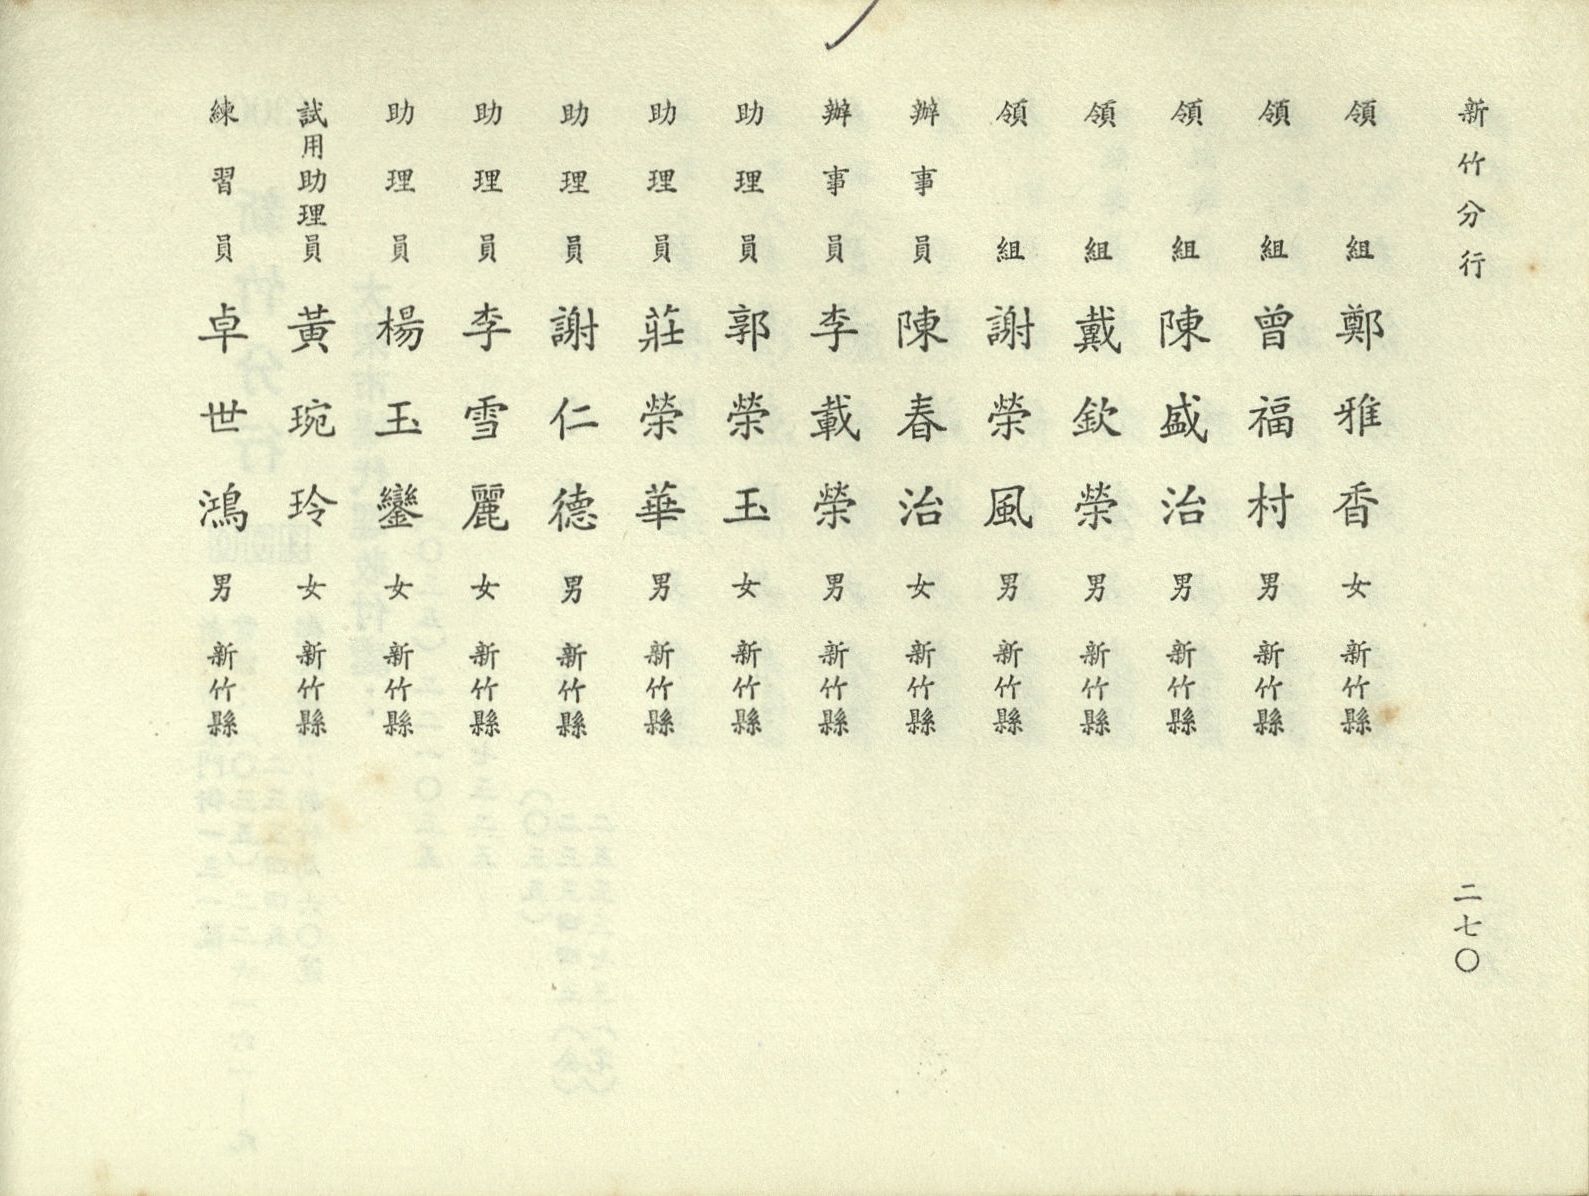 新竹分行
二七〇
領組 鄭雅香 女 新竹縣
領組 曾福村 男 新竹縣
領組 陳盛治 男 新竹縣
領組 戴欽榮 男 新竹縣
領組 謝榮風 男 新竹縣
辦事員 陳春治 女 新竹縣
辦事員 李載榮 男 新竹縣
助理員 郭榮玉 女 新竹縣
助理員 莊榮華 男 新竹縣
助理員 謝仁德 男 新竹縣
助理員 李雪麗 女 新竹縣
助理員 楊玉鑾 女 新竹縣
試用助理員 黃琬玲 女 新竹縣
練習員 卓世鴻 男 新竹縣